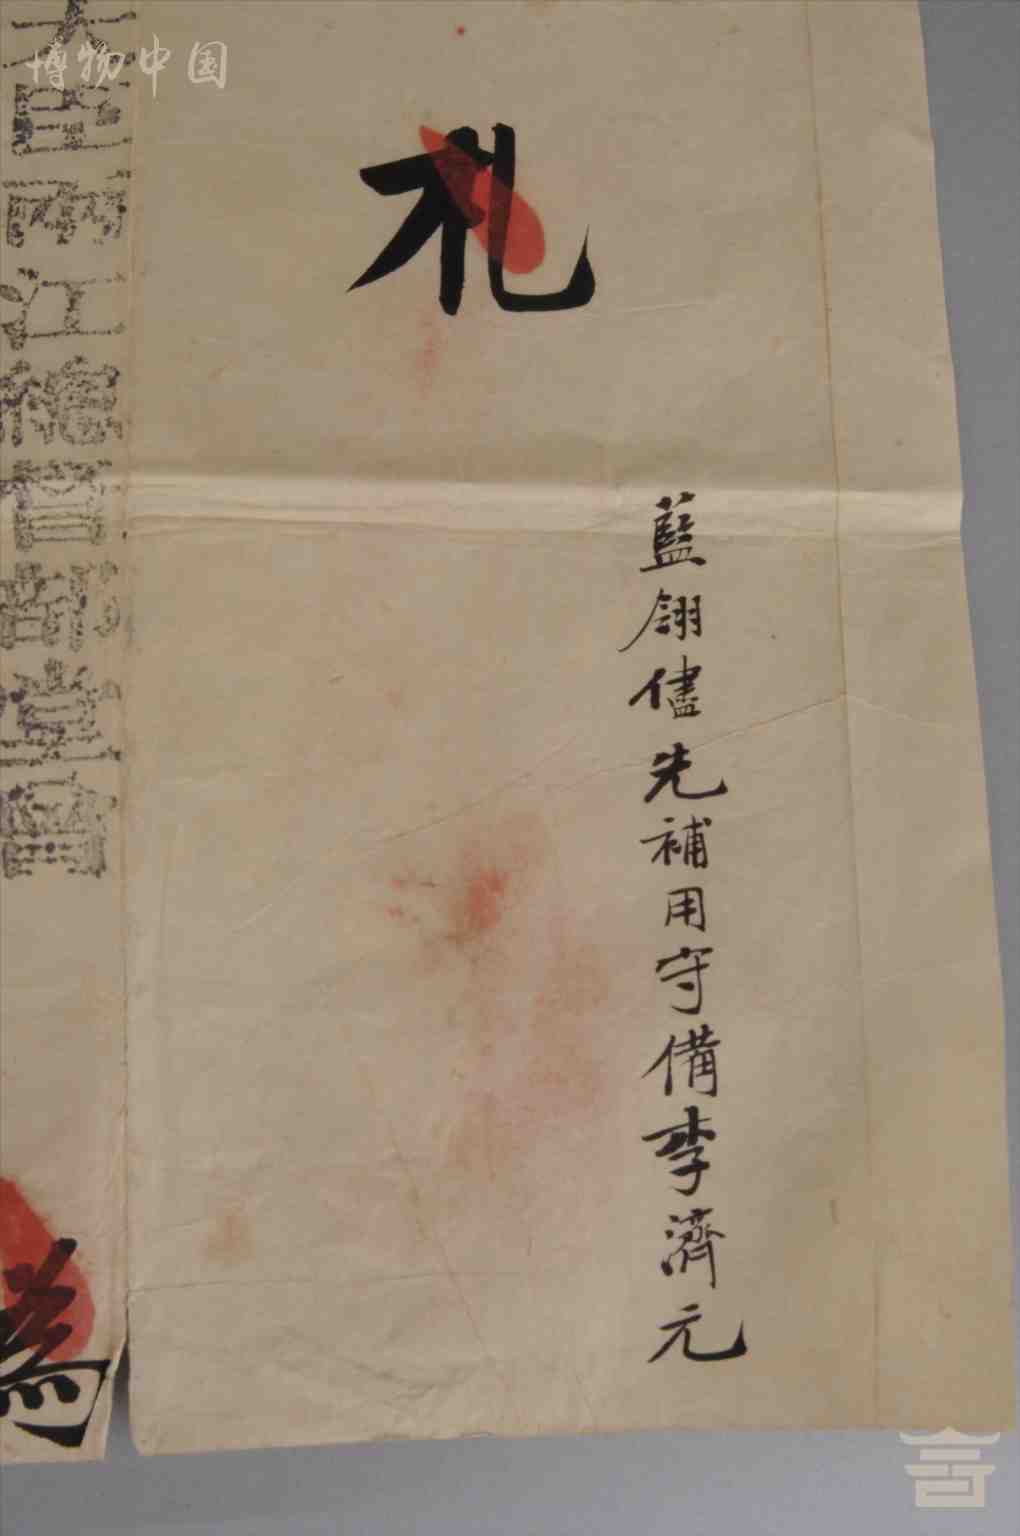 博物中国
札
藍翎儘先補用守備李濟元
大臣兩江總督部堂曾
為